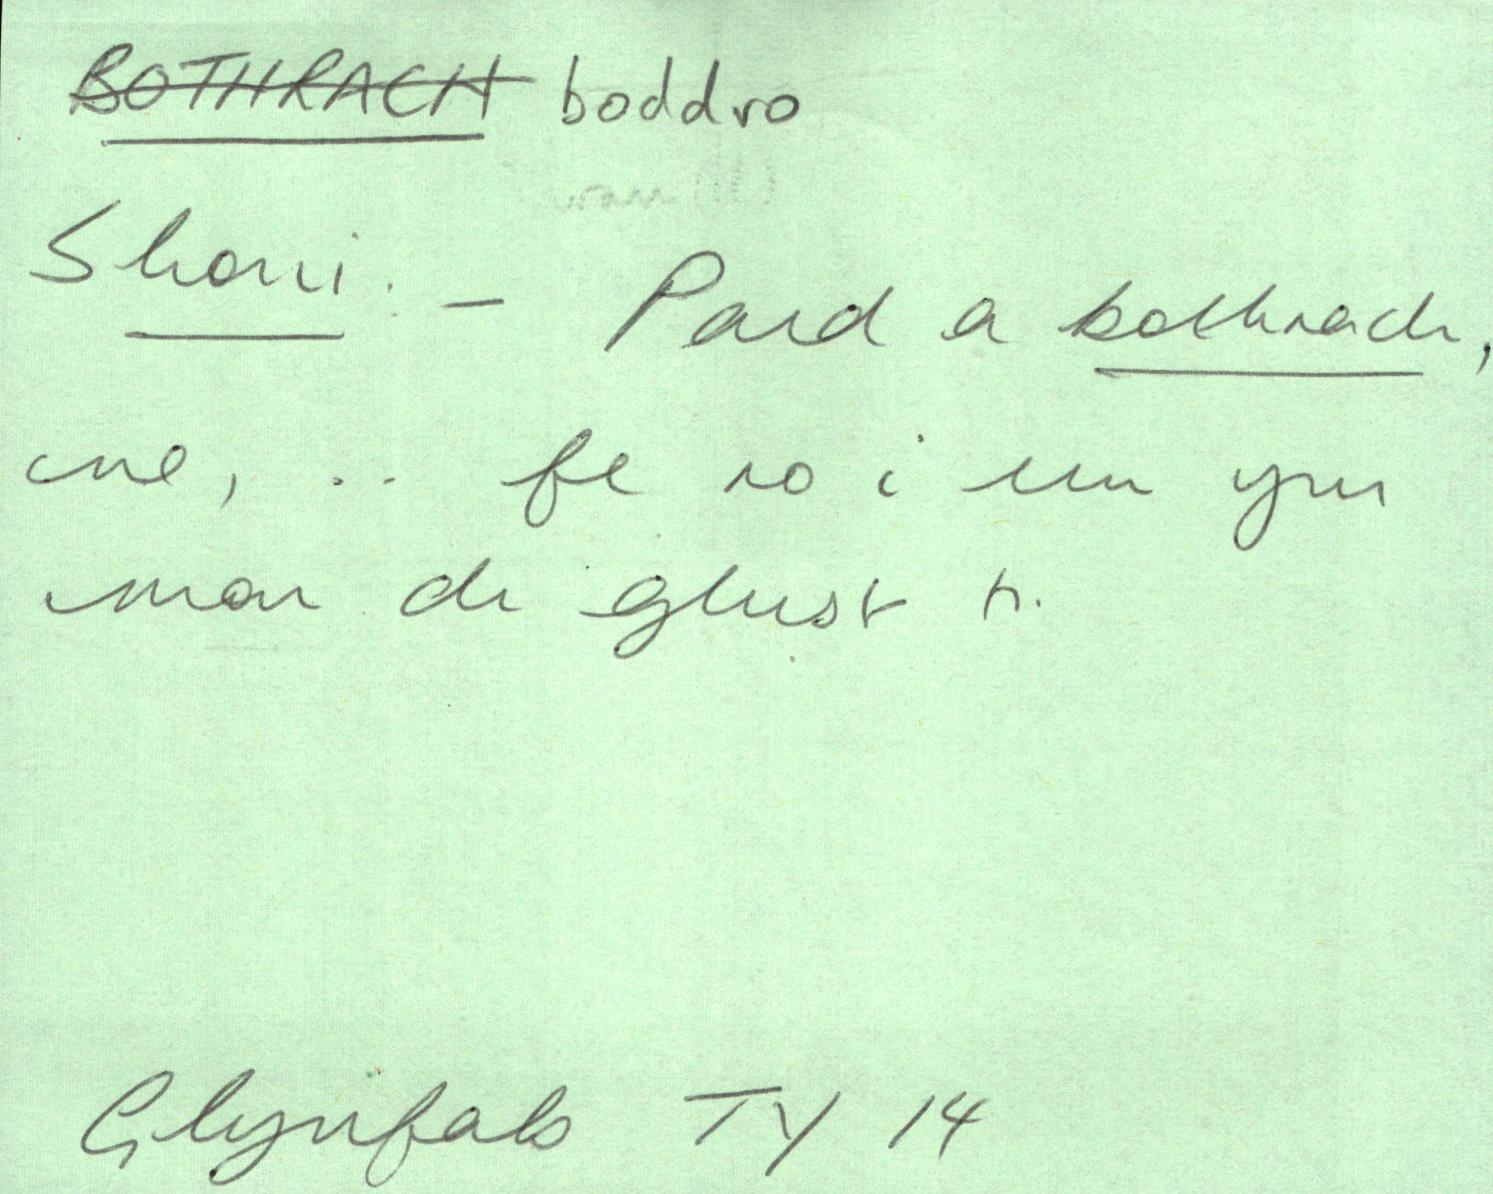 BOTHRACH boddro
Shoni. - Paid a bothrach,
w̶
fe ro i un yn
mon di glust ti.
Glynfab TY 14